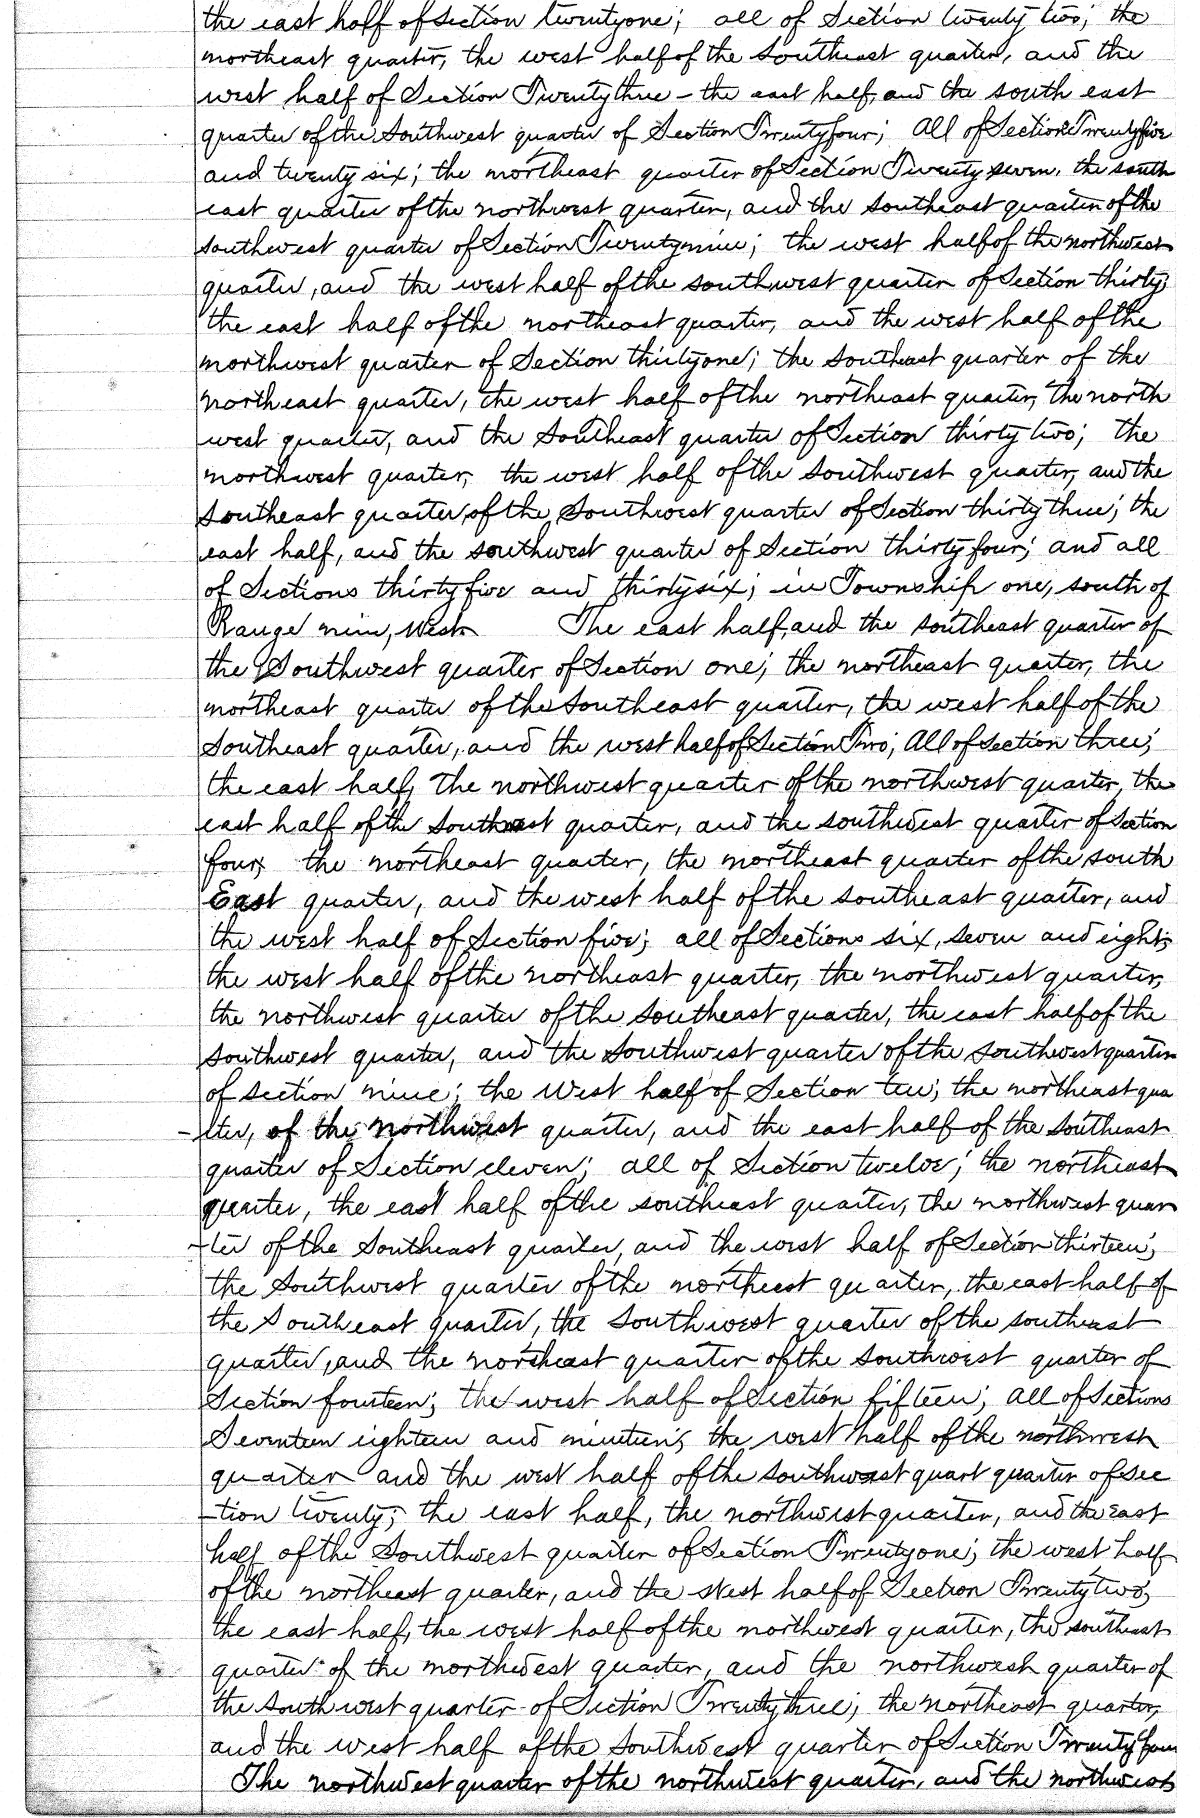 the east half of Section twentyone; all of Section twenty two; the
northeast quarter, the west half of the Southeast quarter, and the
west half of Section Twentythree - the east half, and the south east
quarter of the Southwest quarter of Section Twentyfour; All of Sections Twentyfive
and twenty six; the northeast quarter of Section Twenty seven, the south
east quarter of the northwest quarter, and the Southeast quarter of the
southwest quarter of Section Twentynine; the west half of the northwest
quarter, and the west half of the southwest quarter of Section thirty;
the east half of the northeast quarter, and the west half of the
northwest quarter of Section thirtyone; the Southeast quarter of the
northeast quarter, the west half of the northeast quarter, the north
west quarter, and the Southeast quarter of Section thirty two; the
northwest quarter, the west half of the Southwest quarter, and the
Southeast quarter, of the, Southwest quarter of Section thirty three; the
east half, and the southwest quarter of Section thirty four; and all
of Sections thirty five and thirtysix; in Township one, south of
Range nine, West The east half, and the southeast quarter of
the Southwest quarter of Section one; the northeast quarter, the
northeast quarter of the Southeast quarter, the west half of the
Southeast quarter, and the west half of Section Two; All of Section three;
the east half, the northwest quarter of the northwest quarter, the
east half of the Southwest quarter, and the southwest quarter of Section
four; the northeast quarter, the northeast quarter of the south
East quarter, and the west half of the southeast quarter, and
the west half of Section five; all of Sections six, seven and eight;
the west half of the northeast quarter, the northwest quarter,
the northwest quarter of the Southeast quarter, the east half of the
Southwest quarter, and the Southwest quarter of the southwest quarter
of section nine; the West half of Section ten; the northeast qua
-rter, of the northwest quarter, and the east half of the Southeast
quarter of Section eleven; all of Section twelve; the northeast
quarter, the east half of the southeast quarter, the northwest quar
-ter of the Southeast quarter, and the west half of Section thirteen;
the Southwest quarter of the northeast quarter, the east half of
the Southeast quarter, the Southwest quarter of the southeast
quarter, and the northeast quarter of the Southwest quarter of
Section fourteen; the west half of Section fifteen; all of Sections
Seventeen eighteen and nineteen; the west half of the northwest
quarter and the west half of the southwest quart quarter of Sec
-tion twenty; the east half, the northwest quarter, and the east
half of the Southwest quarter of Section Twentyone; the west half
of the northeast quarter, and the West half of Section Twentytwo;
the east half, the west half of the northwest quarter, the southeast
quarter of the northwest quarter, and the northwest quarter of
the Southwest quarter of Section Twentythree; the northeast quarter,
and the west half of the Southwest quarter of Section Twentyfour
The northwest quarter of the northwest quarter, and the northwest